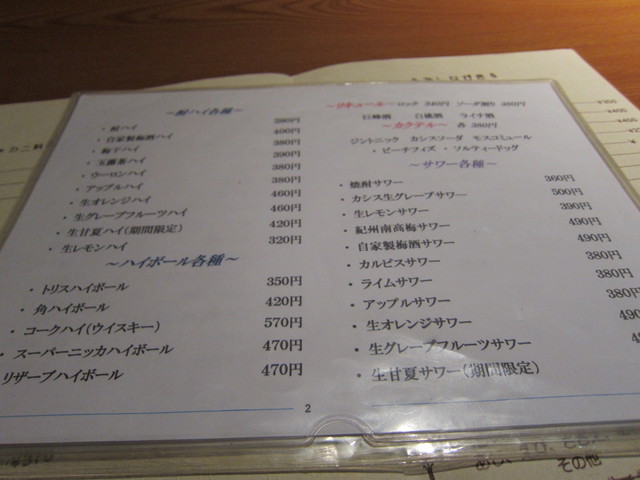 ~酎ハイ各種~
・酎ハイ 280円
・自家製梅酒ハイ 400円
・梅干ハイ 380円
・玉露茶ハイ 390円
・ウーロンハイ 380円
・アップルハイ 380円
・生オレンジハイ 460円
・生グレープフルーツハイ 460円
・生甘夏ハイ(期間限定) 420円
・生レモンハイ 320円
~ハイボール各種~
・トリスハイボール 350円
・角ハイボール 420円
・コークハイ(ウイスキー) 570円
・スーパーニッカハイボール 470円
リザーブハイボール 470円
~リキュール~ ロック 340円 ソーダ割り 380円
巨峰酒 白桃酒 ライチ酒
~カクテル~ 各 380円
ジントニック カシスソーダ モスコミュール
・ピーチフィズ ・ソルティードッグ
~サワー各種~
・焼酎サワー 360円
・カシス生グレープサワー 500円
・生レモンサワー 390円
・紀州南高梅サワー 490円
・自家製梅酒サワー 490円
・カルピスサワー 380円
・ライムサワー 380円
・アップルサワー 380円
・生オレンジサワー 490
・生グレープフルーツサワー
・生甘夏サワー(期間限定)
2
その他